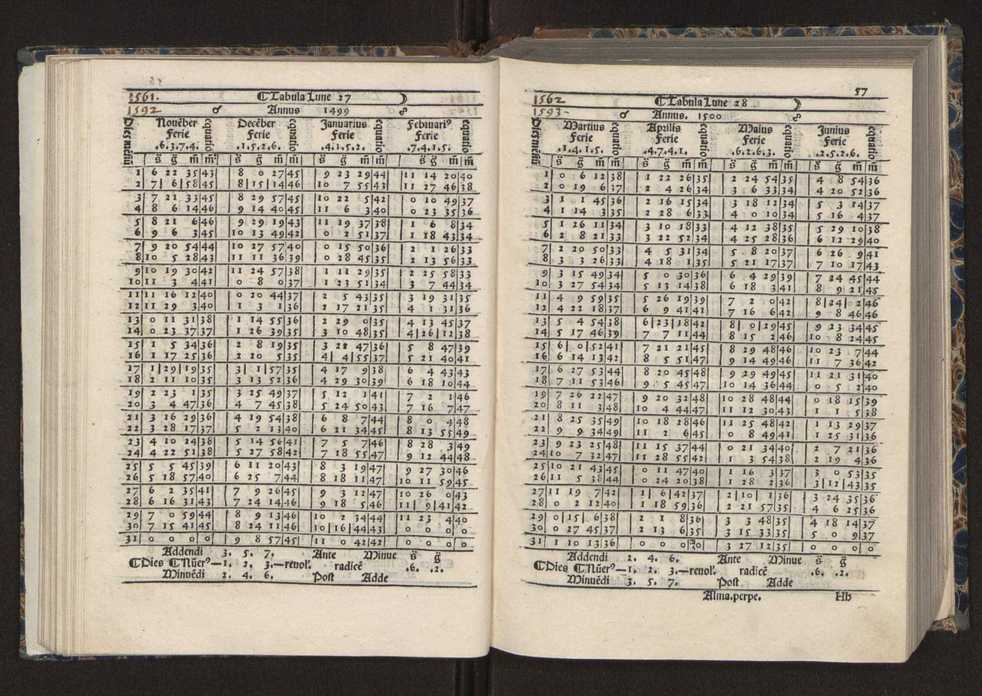 1561. ☾ Tabula Lune 27 ☽
1592 ♂ Annus 1499 ☍
Dies mēsiū Nouēber equatio Decēber equatio Januarius equatio Februari⁹ equatio
Ferie Ferie Ferie Ferie
.6.3.7.4. .1.5.2.6. .4.1.5.2. .7.4.1.5.
s̄ ḡ m̄ m̄ s̄ ḡ m̄ m̄ s̄ ḡ m̄ m̄ s̄ ḡ m̄ m̄
1 6 22 35 43 8 0 27 45 9 23 29 44 11 14 20 40
2 7 6 58 45 8 15 14 46 10 7 55 43 11 27 46 38
3 7 21 33 45 8 29 57 45 10 22 5 42 0 10 49 37
4 8 6 14 46 9 14 40 45 11 6 3 40 0 23 35 36
5 8 21 6 46 9 29 19 43 11 19 37 38 1 6 8 34
6 9 6 3 45 10 13 49 42 0 2 51 37 1 18 43 34
7 9 20 54 44 10 27 57 40 0 15 50 36 2 1 26 33
8 10 5 28 43 11 11 36 39 0 28 45 35 2 13 56 33
9 10 19 30 42 11 24 57 38 1 11 29 35 2 25 58 33
10 11 3 4 41 0 8 0 37 1 23 51 34 3 7 44 34
11 11 16 12 40 0 20 44 37 2 5 43 35 3 19 31 35
12 11 29 3 40 1 3 1 36 2 17 21 35 4 1 31 36
13 0 11 31 38 1 14 55 36 1 29 0 35 4 13 45 37
14 0 23 37 37 1 26 39 35 3 10 48 35 4 26 12 38
15 1 5 34 36 2 8 19 35 3 22 47 36 5 8 47 39
16 1 17 25 36 2 20 5 35 4 4 55 37 5 21 40 41
17 1 29 19 35 3 1 57 35 4 17 9 38 6 4 43 43
18 2 11 10 35 3 13 52 36 4 29 30 39 6 18 10 44
19 2 23 1 35 3 25 49 37 5 12 1 41 7 2 1 46
20 3 4 47 36 4 7 45 38 5 24 50 43 7 16 7 47
21 3 16 29 36 4 19 54 38 6 8 7 44 8 0 4 48
22 3 28 17 37 5 2 13 40 6 21 34 45 8 13 55 49
23 4 10 24 38 5 14 56 41 7 5 7 46 8 28 3 49
24 4 22 51 38 5 27 58 42 7 18 55 47 9 12 44 48
25 5 5 45 39 6 11 20 43 8 3 19 47 9 27 30 46
26 5 18 57 40 6 25 7 44 8 18 11 47 10 11 59 45
27 6 2 35 41 7 9 26 45 9 3 12 47 10 26 0 43
28 6 16 31 43 7 24 14 46 9 18 5 46 11 9 41 42
29 7 0 59 44 8 9 13 46 10 2 34 44 11 23 4 40
30 7 15 41 45 8 24 11 46 10 16 44 43 0 0 0 0
31 0 0 0 0 9 8 57 45 11 0 42 42 0 0 0 0
Addendi 3. 5. 7. Ante Minue s̄ ḡ
☾Dies ☾Nūer⁹—1. 2. 3.—reuol. radicē .6. .2.
Minuēdi 2. 4. 6. Post Adde
57
1562 ☾ Tabula Lune 28 ☽
1593- ♂ Annus. 1500 ☍
Dies mēsiū Martius equatio Aprilis equatio Maius equatio Junius equatio
Ferie Ferie Ferie Ferie
.3.1.4.1.5. .4.7.4.1. .6.2.6.3. .2.5.2.6.
s̄ ḡ m̄ m̄ s̄ ḡ m̄ m̄ s̄ ḡ m̄ m̄ s̄ ḡ m̄ m̄
1 0 6 12 38 1 22 26 35 2 24 54 35 4 8 54 36
2 0 19 6 37 2 4 26 34 3 6 33 34 4 20 52 36
3 1 1 45 36 2 16 15 34 3 18 12 34 5 3 14 37
4 1 14 3 35 2 28 6 33 4 0 10 34 5 16 4 37
5 1 26 11 34 3 10 18 33 4 12 38 35 5 29 10 38
6 2 8 21 33 3 22 52 34 4 25 28 36 6 12 29 40
7 2 20 50 33 4 5 31 34 5 8 20 37 6 26 9 41
8 3 3 26 33 4 18 1 35 5 21 17 37 7 10 17 43
9 3 15 49 34 5 0 30 36 6 4 29 39 7 24 45 44
10 3 27 54 34 5 13 14 38 6 18 3 41 8 9 21 45
11 4 9 59 35 5 26 19 39 7 2 0 42 8 24 2 46
12 4 22 18 37 6 9 41 41 7 16 6 42 9 8 46 46
13 5 4 54 38 6 23 18 42 8 0 29 45 9 23 34 45
14 5 17 46 39 7 7 11 44 8 15 2 46 10 8 24 45
15 6 0 52 41 7 21 21 45 8 29 48 46 10 23 7 44
16 6 14 13 42 8 5 51 47 9 14 49 46 11 7 36 42
17 6 27 53 44 8 20 45 48 9 29 49 45 11 21 31 40
18 7 11 53 46 9 5 45 47 10 14 36 44 0 5 2 40
19 7 26 22 47 9 20 32 48 10 28 48 44 0 18 15 39
20 8 11 3 48 10 4 44 47 11 12 30 43 1 1 5 38
21 8 25 35 49 10 18 28 46 11 25 48 42 1 13 29 37
22 9 9 34 49 11 2 6 45 0 8 49 41 1 25 31 36
23 9 23 25 48 11 15 37 44 0 21 34 40 2 7 21 36
24 10 7 32 47 11 28 55 42 1 3 54 38 2 19 4 36
25 10 21 43 45 0 11 47 40 1 16 3 37 3 0 53 35
26 11 5 38 44 0 24 20 38 1 28 2 36 3 12 43 35
27 11 19 7 42 1 6 42 37 2 10 1 36 3 24 35 36
28 0 2 12 40 1 18 59 36 2 21 57 35 4 6 25 36
29 0 15 6 38 2 1 8 36 3 3 48 35 4 18 14 37
30 0 27 45 37 2 13 6 35 3 15 33 35 5 0 9 37
31 1 10 13 36 0 0 0 0 3 27 12 35 0 0 0 0
Addendi 2. 4. 6. Ante Minue s̄ ḡ
☾Dies ☾Nūer⁹—1. 2. 3.—reuol. radicē .6. .2.
Minuēdi 3. 5. 7. Post Adde
Alma.perpe. Hb